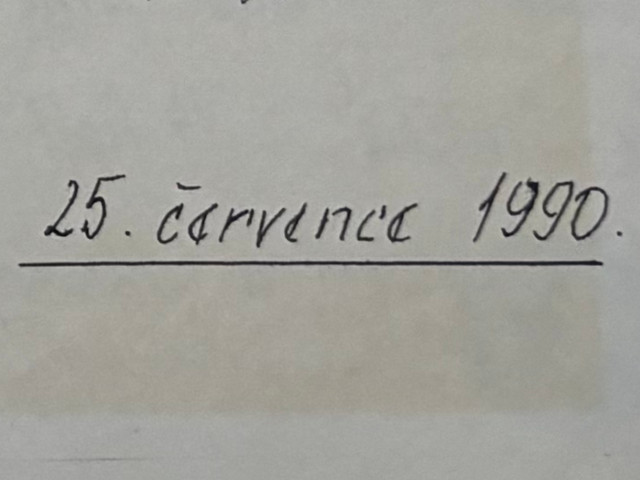 25. července 1990.